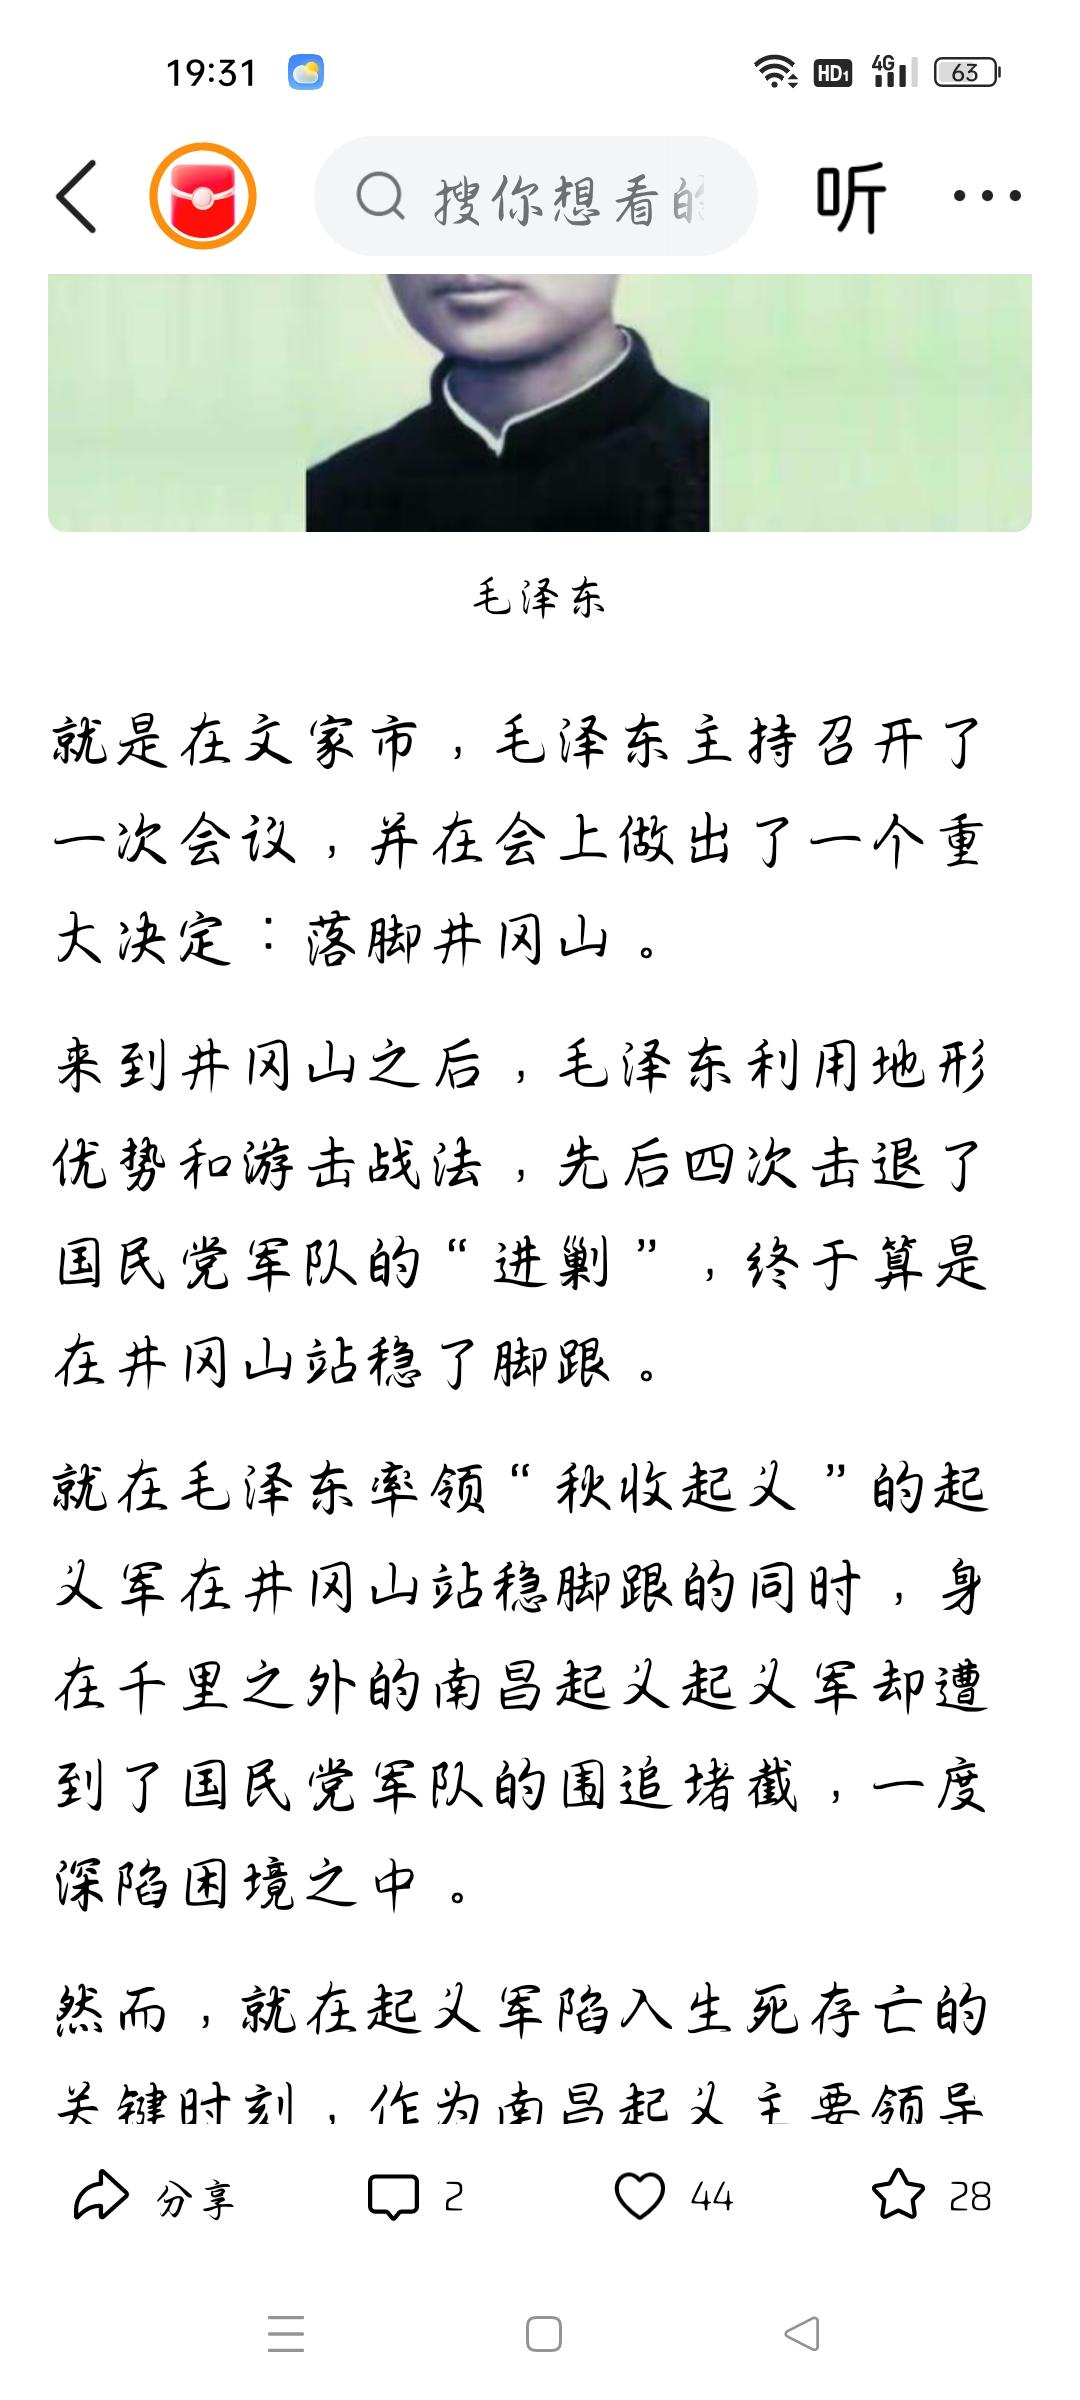 19:31
HD1
4G
63
搜你想看的
听
毛泽东
就是在文家市，毛泽东主持召开了
一次会议，并在会上做出了一个重
大决定：落脚井冈山。
来到井冈山之后，毛泽东利用地形
优势和游击战法，先后四次击退了
国民党军队的“进剿”，终于算是
在井冈山站稳了脚跟。
就在毛泽东率领“秋收起义”的起
义军在井冈山站稳脚跟的同时，身
在千里之外的南昌起义起义军却遭
到了国民党军队的围追堵截，一度
深陷困境之中。
然而，就在起义军陷入生死存亡的
关键时刻，作为南昌起义主要领导
分享
2
44
28